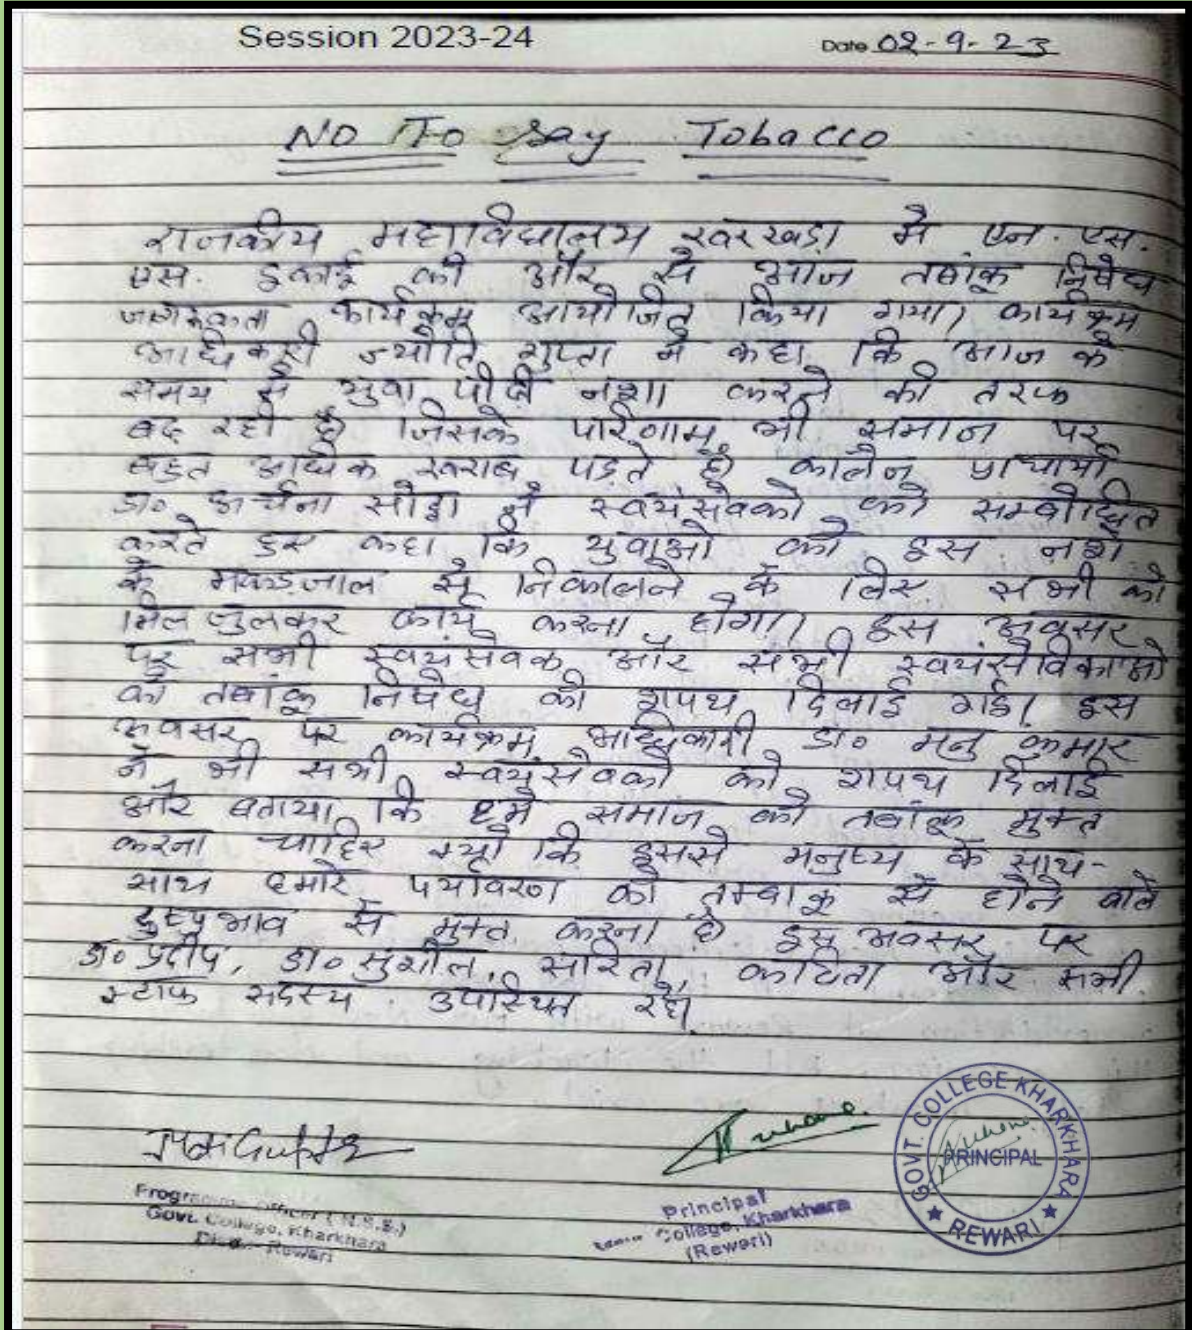 Session 2023-24
Date 02-9-23
No To Say Tobacco
राजकीय महाविद्यालय खरखड़ा मे एन. एस.
एस. इकाई की और से आज तबांकू निषेध
जागरूकता कार्यक्रम आयोजित किया गया। कार्यक्रम
अधिकारी ज्योति गुप्ता ने कहा कि आज के
समय मे युवा पीढी नशा करने की तरफ
बढ रही है जिसके परिणाम भी समाज पर
बहुत अधिक खराब पड़ते है कालेज प्राचार्या
डा० अर्चना ने स्वयंसेवको को सम्बोधित
करते हुए कहा कि युवाओ को इस नशे
के मकड़जाल से निकालने के लिए सभी को
मिल जुलकर कार्य करना होगा। इस अवसर
पर सभी स्वयंसेवक और सभी स्वयंसेविकाओ
को तबांकू निषेध की शपथ दिलाई गई। इस
अवसर पर कार्यक्रम अधिकारी डा० मनु कुमार
ने भी सभी स्वयंसेवको को शपथ दिलाई
और बताया कि हमे समाज को तबांकू मुक्त
करना चाहिए क्यो कि इससे मनुष्य के साथ-
साथ हमारे पर्यावरण को तम्बाकू से होने वाले
दुष्प्रभाव से मुक्त करना है इस अवसर पर
डा० प्रदीप, डा० सुशील, सरिता, कविता और सभी
स्टाफ सदस्य उपस्थित रहे।
Jyoti Gupta
Programme Officer (N.S.S.)
Govt. College, Kharkhara
Distt.- Rewari
Principal
College, Kharkhara
(Rewari)
GOVT. COLLEGE KHARKHARA
PRINCIPAL
★ REWARI ★